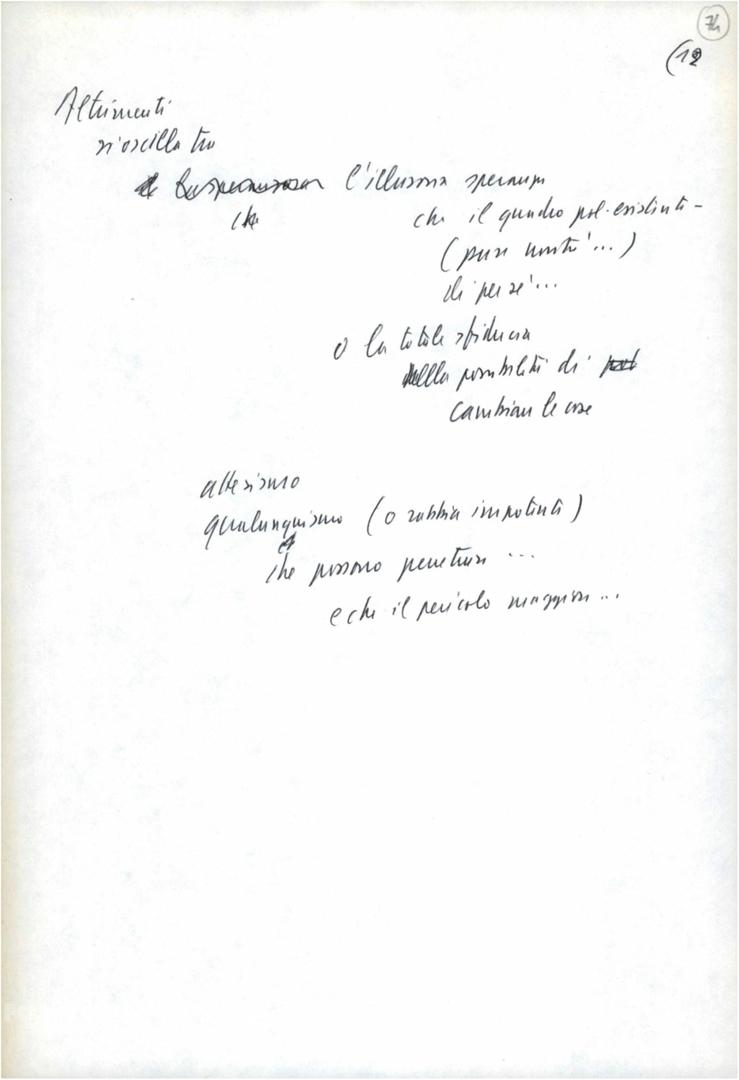 74
(12
Altrimenti
si oscilla tra
l'illusoria speranza
che che il quadro pol. esistente -
(pure novità...)
di per sé...
o la totale sfiducia
nella possibilità di
cambiare le cose
attesismo
qualunquismo (o rabbia impotente)
che possono penetrare ...
e che il pericolo maggiore ...